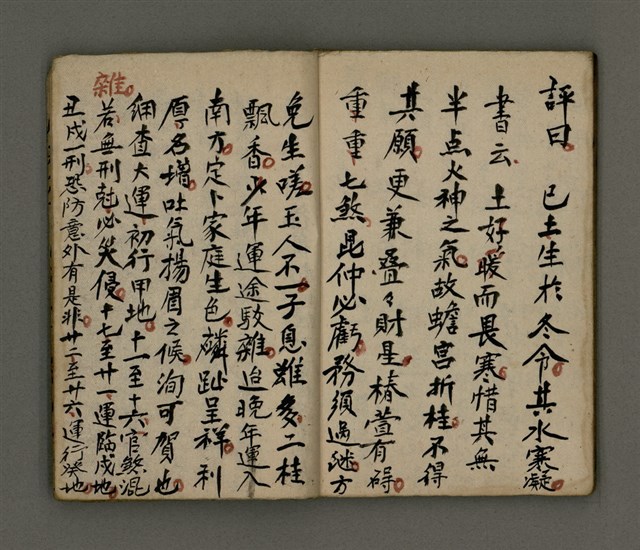 評曰 己土生於冬令其水寒凝
書云 土好暖而畏寒惜其無
半点火神之氣故蟾宮折桂不得
其願更兼疊々財星椿萱有碍
重重七煞昆仲必虧務須過継方
免生嗟玉人不一子息雖多二桂
飄香少年運途駁雜迨晚年運入
南方定卜家庭生色麟趾呈祥利
厚名增吐氣揚眉之候洵可賀也
細查大運初行甲地十一至十六官煞混
雜
若無刑尅必災侵十七至廿一運臨戌地
丑戌一刑恐防意外有是非廿二至廿六運行癸地